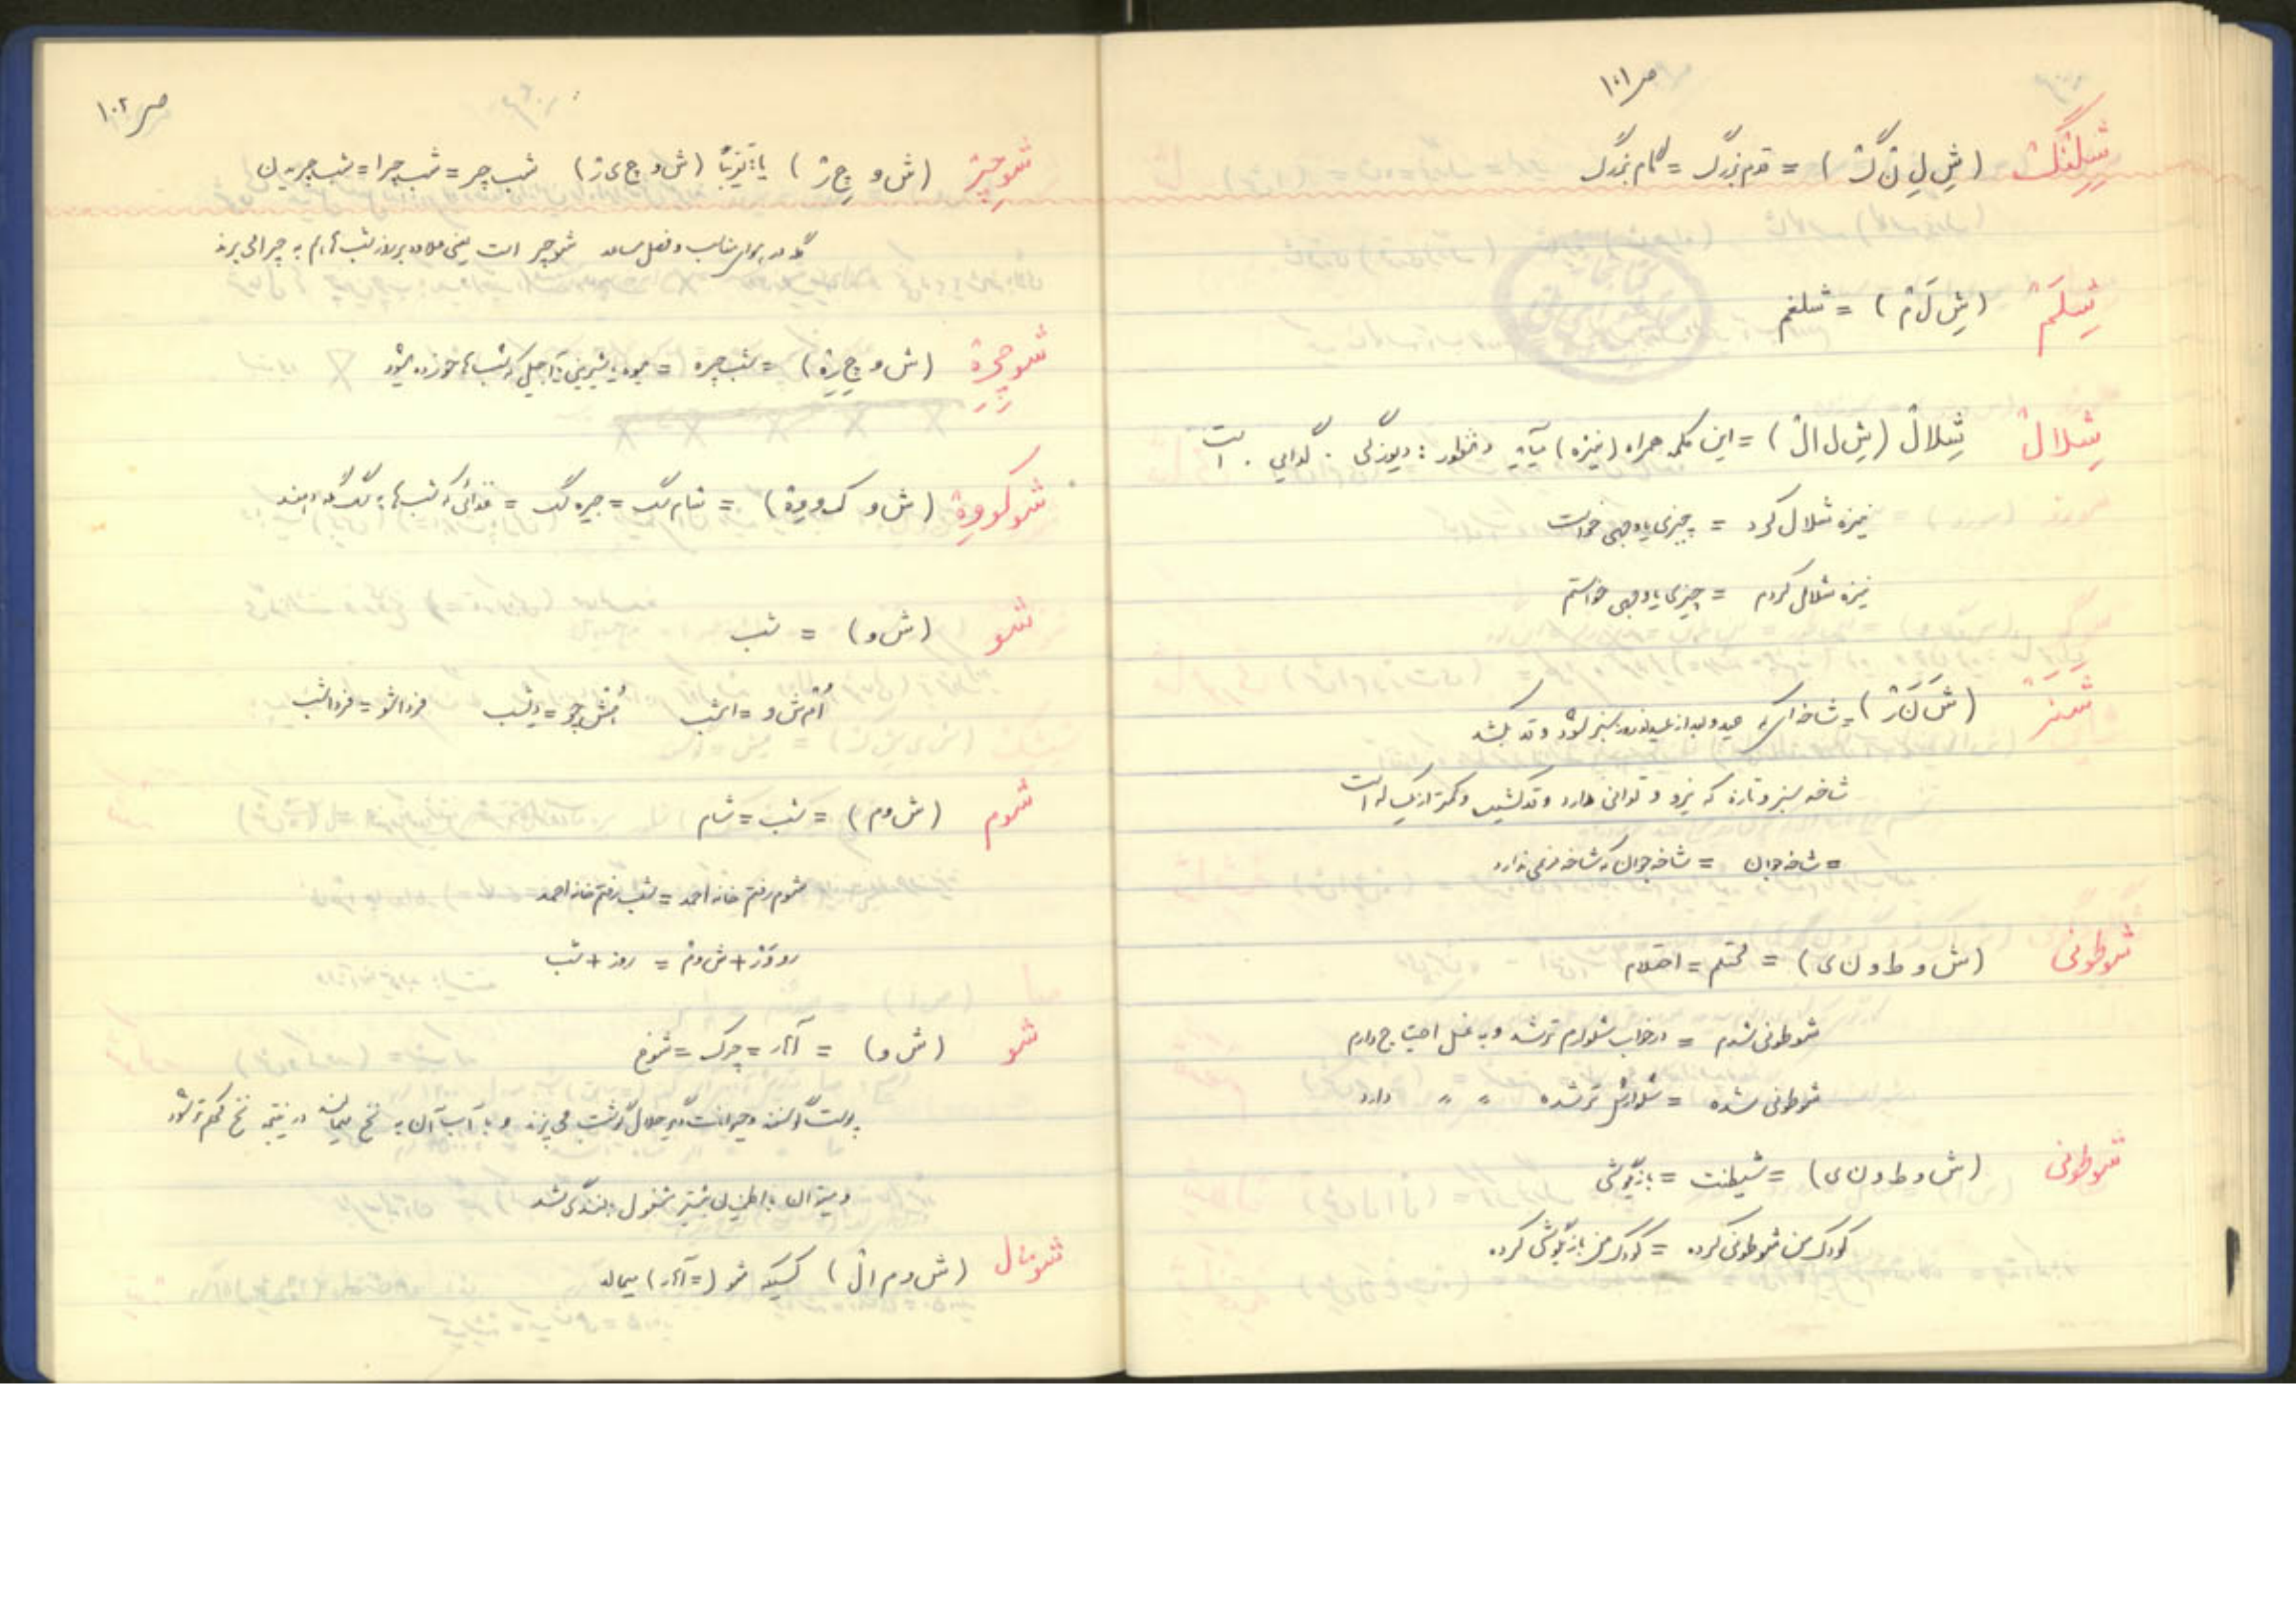 ص ۱۰۱
شِلِنْگ (شِ لِ نْ گْ) = قدم بزرگ = گام بزرگ
شِلَمْ (شِ لَ مْ) = شلغم
شِلالْ شِلالْ (شِ ل ا لْ) = این کلمه همراه (نیزه) میآید و منظور: دریوزگی . گدایی . است
نیزه شلال کرد = چیزی یا وجهی خواست
نیزه شلال کردم = چیزی یا وجهی خواستم
شَنَرْ (شَ نَ رْ) = شاخه ای که عید و بعد از عید نوروز سبز شود و قد بکشد
شاخه سبز و تازه که نیرو و توانی دارد و قد کشیده و کمتر از یکساله است
= شاخه جوان = شاخه جوان که شاخه فرعی ندارد
شوطونی (ش و ط و ن ی) = محتلم = احتلام
شوطونی شدم = در خواب شلوارم تر شد و به غسل احتیاج دارم
شوطونی شده = شلوارش تر شده " " دارد
شوطونی (ش و ط و ن ی) = شیطنت = بازیگوشی
کودک من شوطونی کرده = کودک من بازیگوشی کرده
ص ۱۰۲
شوچِرْ (ش و چِ رْ) یا تقریباً (ش و چ ی ر) شب چر = شب چرا = شب چریدن
گله در هوای مناسب و فصل مساعد شوچر است یعنی علاوه بر روز شب هم به چرا می برند
شوچِرِهْ (ش و چِ رِهْ) = شب چره = میوه یا شیرینی یا آجیلی که شب ها خورده میشود
شوکووِهْ (ش و ک و وِهْ) = شام سگ = جیره سگ = غذائی که شب ها به سگ گله دهند
شو (ش و) = شب
اُم ش و = امشب پرشو = دیشب فرداشو = فرداشب
شوم (ش و م) = شب = شام
شوم رفتم خانه احمد = شب رفتم خانه احمد
رووَزْ + ش و مْ = روز + شب
شو (ش و) = آهار = چرک = شوخ
پوست گوسفند و حیوانات دیگر حلال گوشت می پزند و با آب آن به نخ میمالند در نتیجه نخ محکم تر شود
و میتوان با اطمینان بیشتر مشغول بافندگی شد
شومال (ش و م ا لْ) کسیکه شو (= آهار) میماله